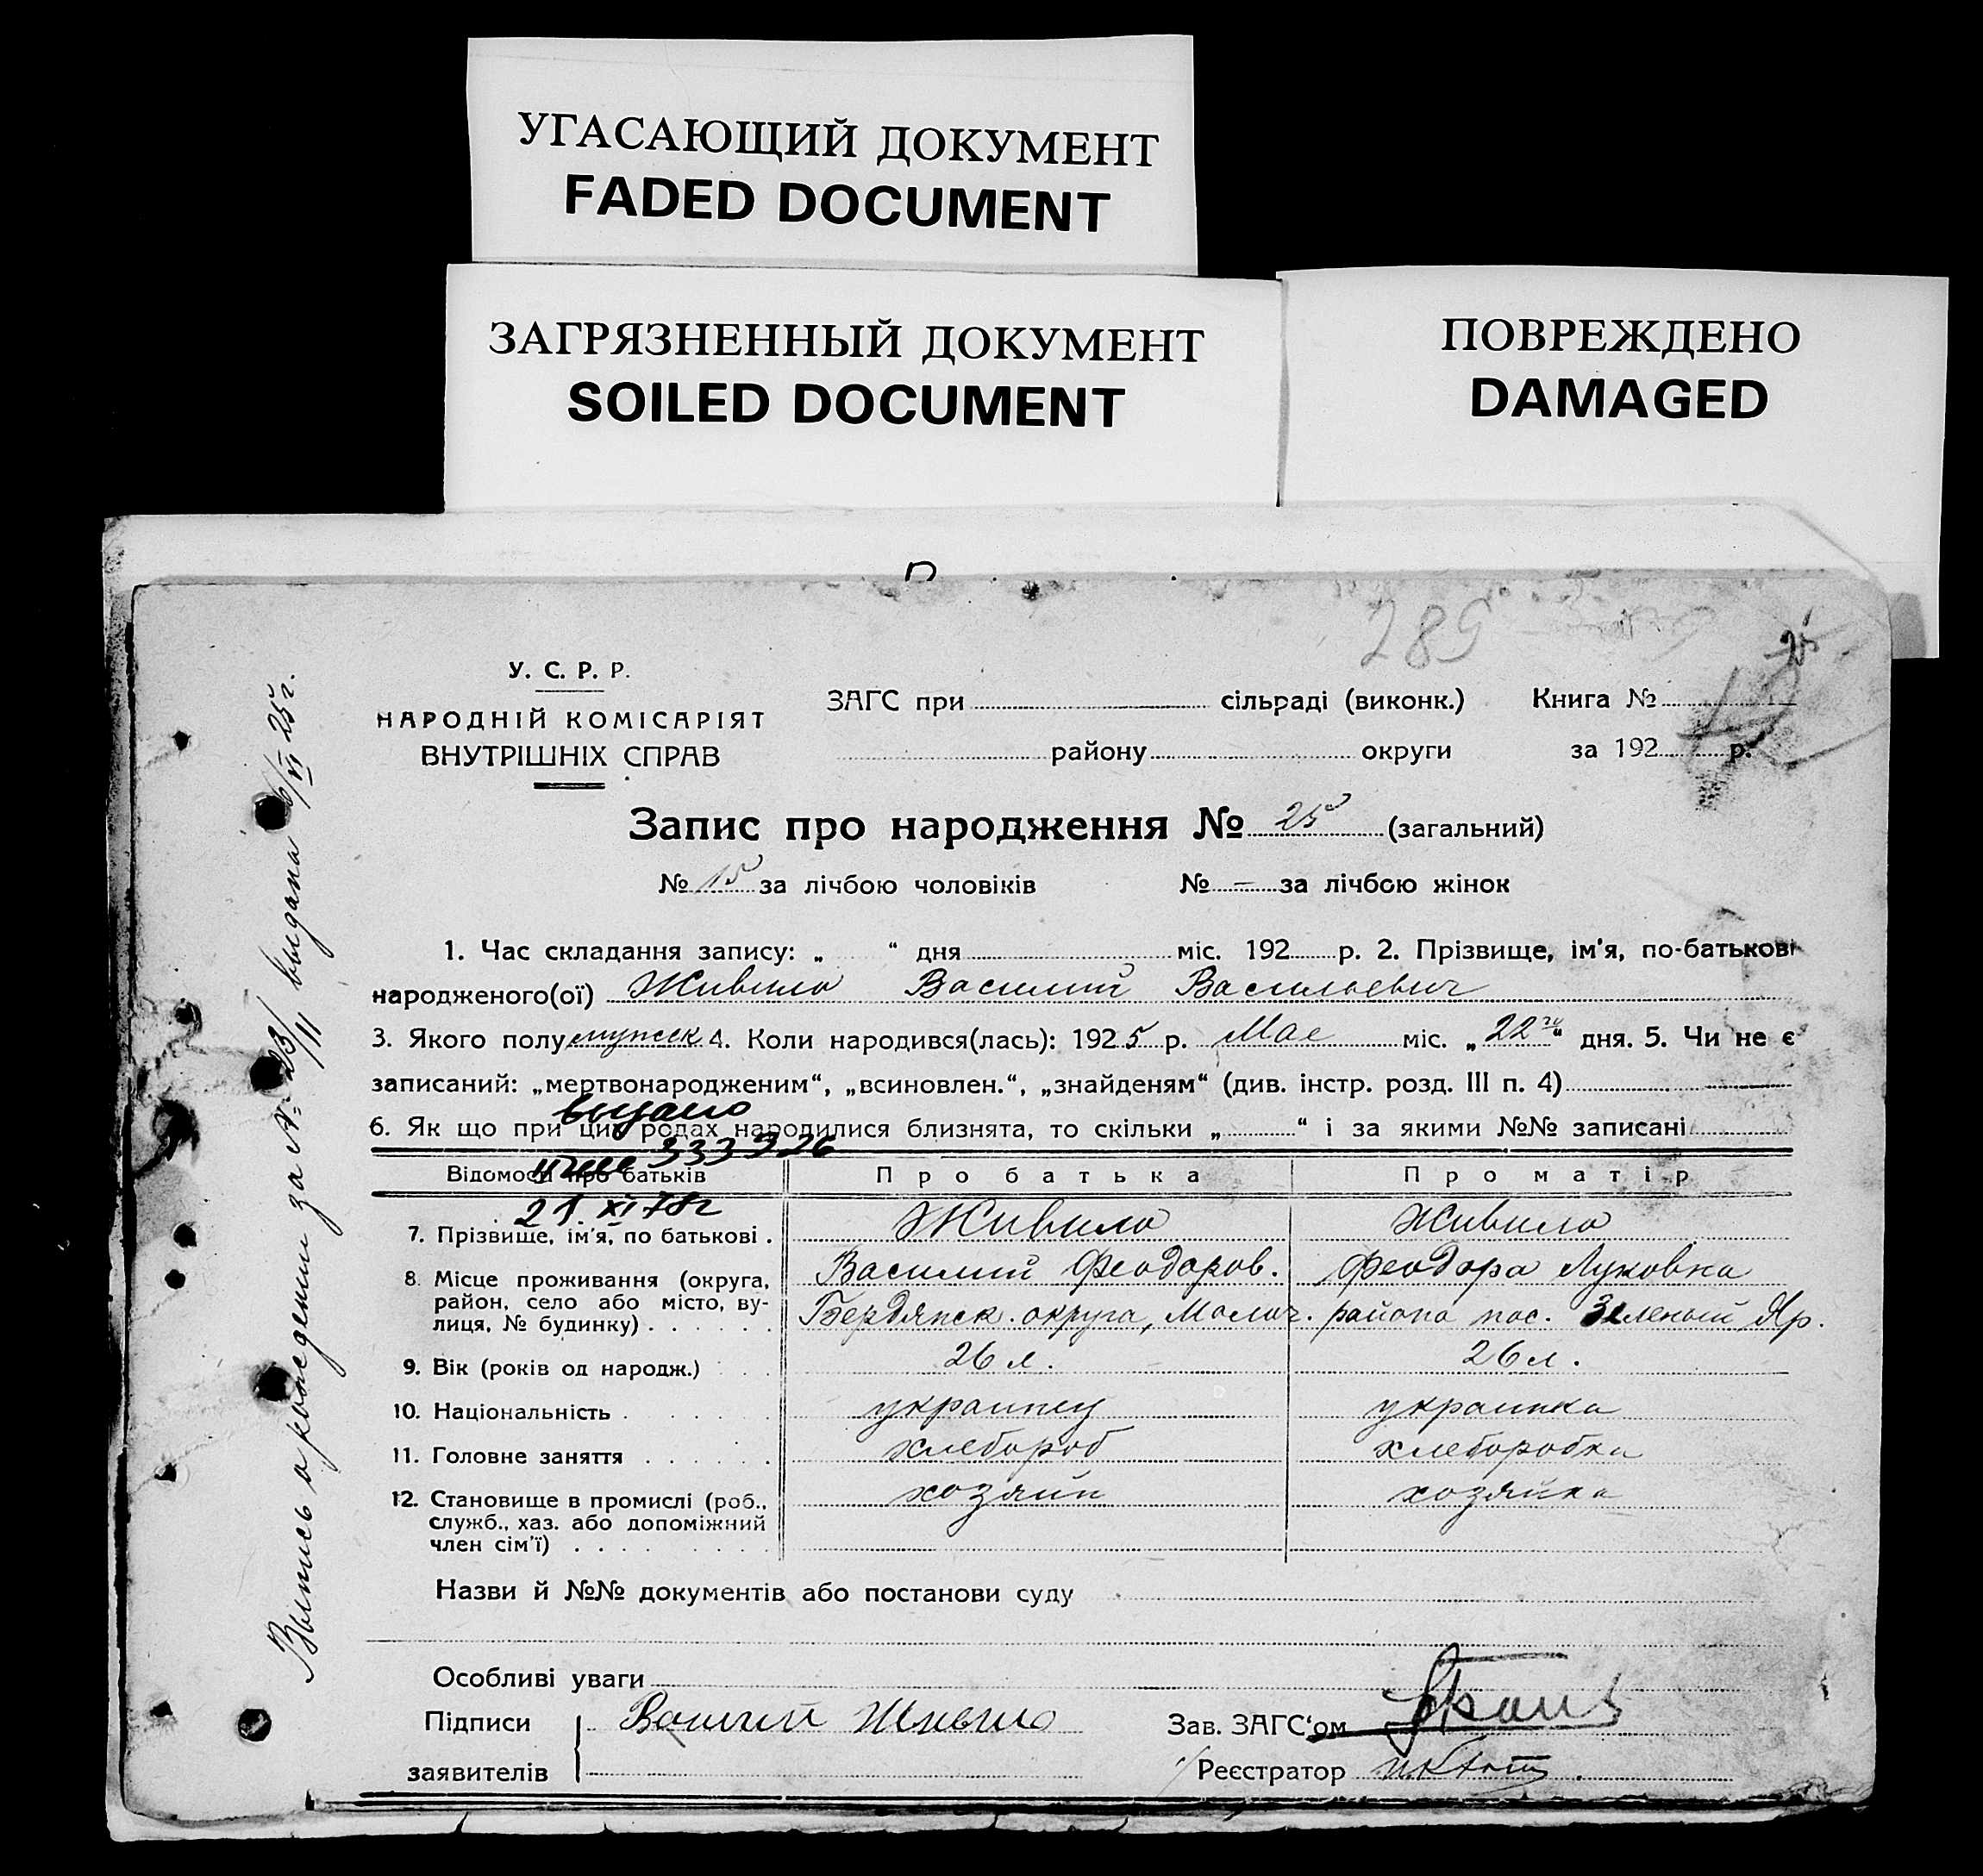 УГАСАЮЩИЙ ДОКУМЕНТ
FADED DOCUMENT
ЗАГРЯЗНЕННЫЙ ДОКУМЕНТ
SOILED DOCUMENT
ПОВРЕЖДЕНО
DAMAGED
289
25
У. С. Р. Р.
НАРОДНІЙ КОМІСАРІЯТ
ВНУТРІШНІХ СПРАВ
ЗАГС при сільраді (виконк.) Книга №
району округи за 192 р.
Запис про народження № 25 (загальний)
№ 15 за лічбою чоловіків № – за лічбою жінок
1. Час складання запису: „ “ дня міс. 192 р. 2. Прізвище, ім'я, по-батькові
народженого(ої) Живило Василий Васильевич
3. Якого полу мужск 4. Коли народився(лась): 1925 р. Мая міс. „22го“ дня. 5. Чи не є
записаний: „мертвонародженим“, „всиновлен.“, „знайденям“ (див. інстр. розд. III п. 4)
6. Як що при цих родах народилися близнята, то скільки „ “ і за якими №№ записані
выдано
333926
21. XI 78г
Відомости про батьків Про батька Про матір
7. Прізвише, ім'я, по батькові . Живило Живило
Василий Феодоров. Феодора Луковна
8. Місце проживання (округа,
район, село або місто, вулиця, № будинку) . . . . . . Бердянск. округа, Молоч. района пос. Зеленый Яр.
9. Вік (років од народж.) 26 л. 26 л.
10. Національність . украинец украинка
11. Головне заняття . . . . . . хлебороб хлеборобка
12. Становище в промислі (роб.,
служб., хаз. або допоміжний
член сім'ї) . . . . хозяин хозяйка
Назви й №№ документів або постанови суду
Особливі уваги
Підписи Василий Живило Зав. ЗАГС'ом
заявителів Реєстратор
Выпись о рождении за № 23/11 выдана 6/VI 25 г.